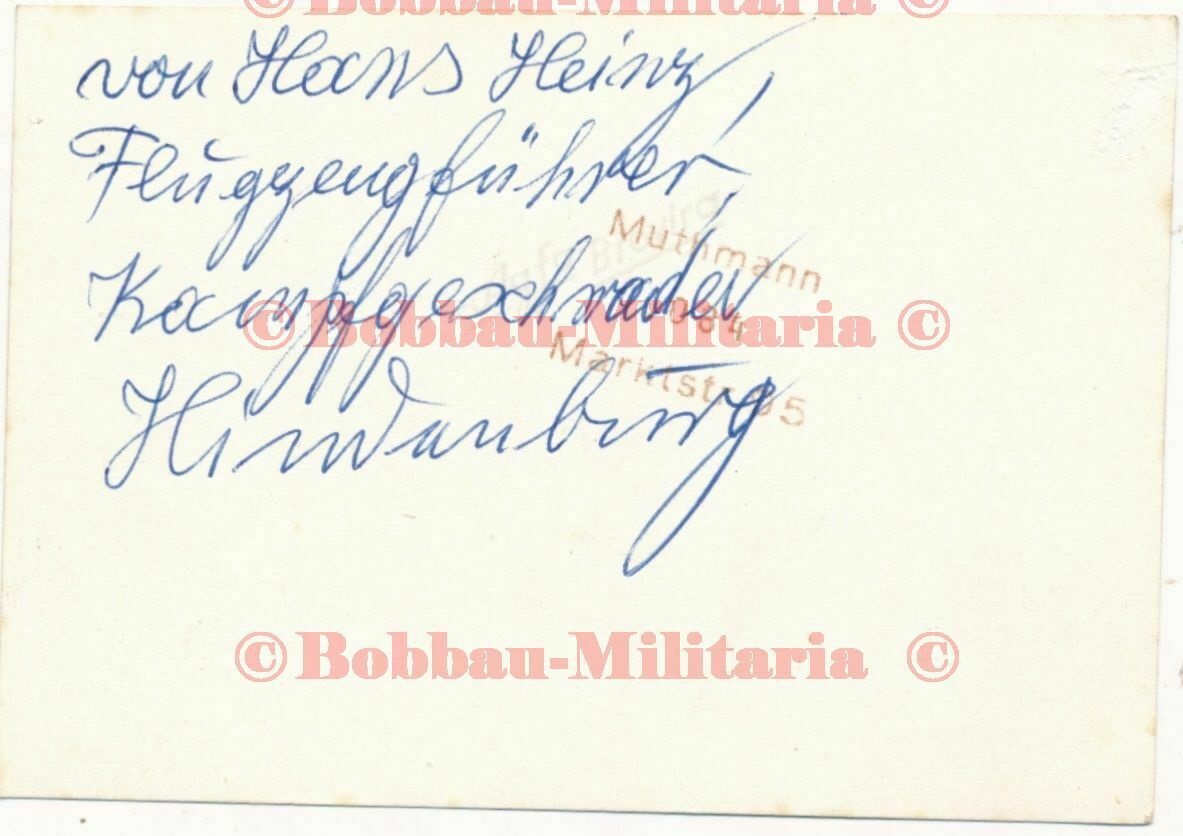 © Bobbau-Militaria ©
von Hans Heinz,
Flugzeugführer,
Muthmann
Kampfgeschwader
084
© Bobbau-Militaria ©
Marktstr. 95
Hindenburg
© Bobbau-Militaria ©